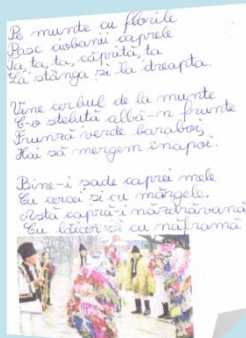 Pe munte cu florile
Pasc ciobanii caprele
Ța, ța, ța, căpriță, ța
La stânga și la dreapta.
Vine cerbul de la munte
C-o steluță albă-n frunte
Frunză verde baraboi,
Hai să mergem înapoi.
Bine-i șade caprei mele
Cu cercei și cu mărgele.
Astă capră-i năzdrăvană
Cu lăicer și cu năframă